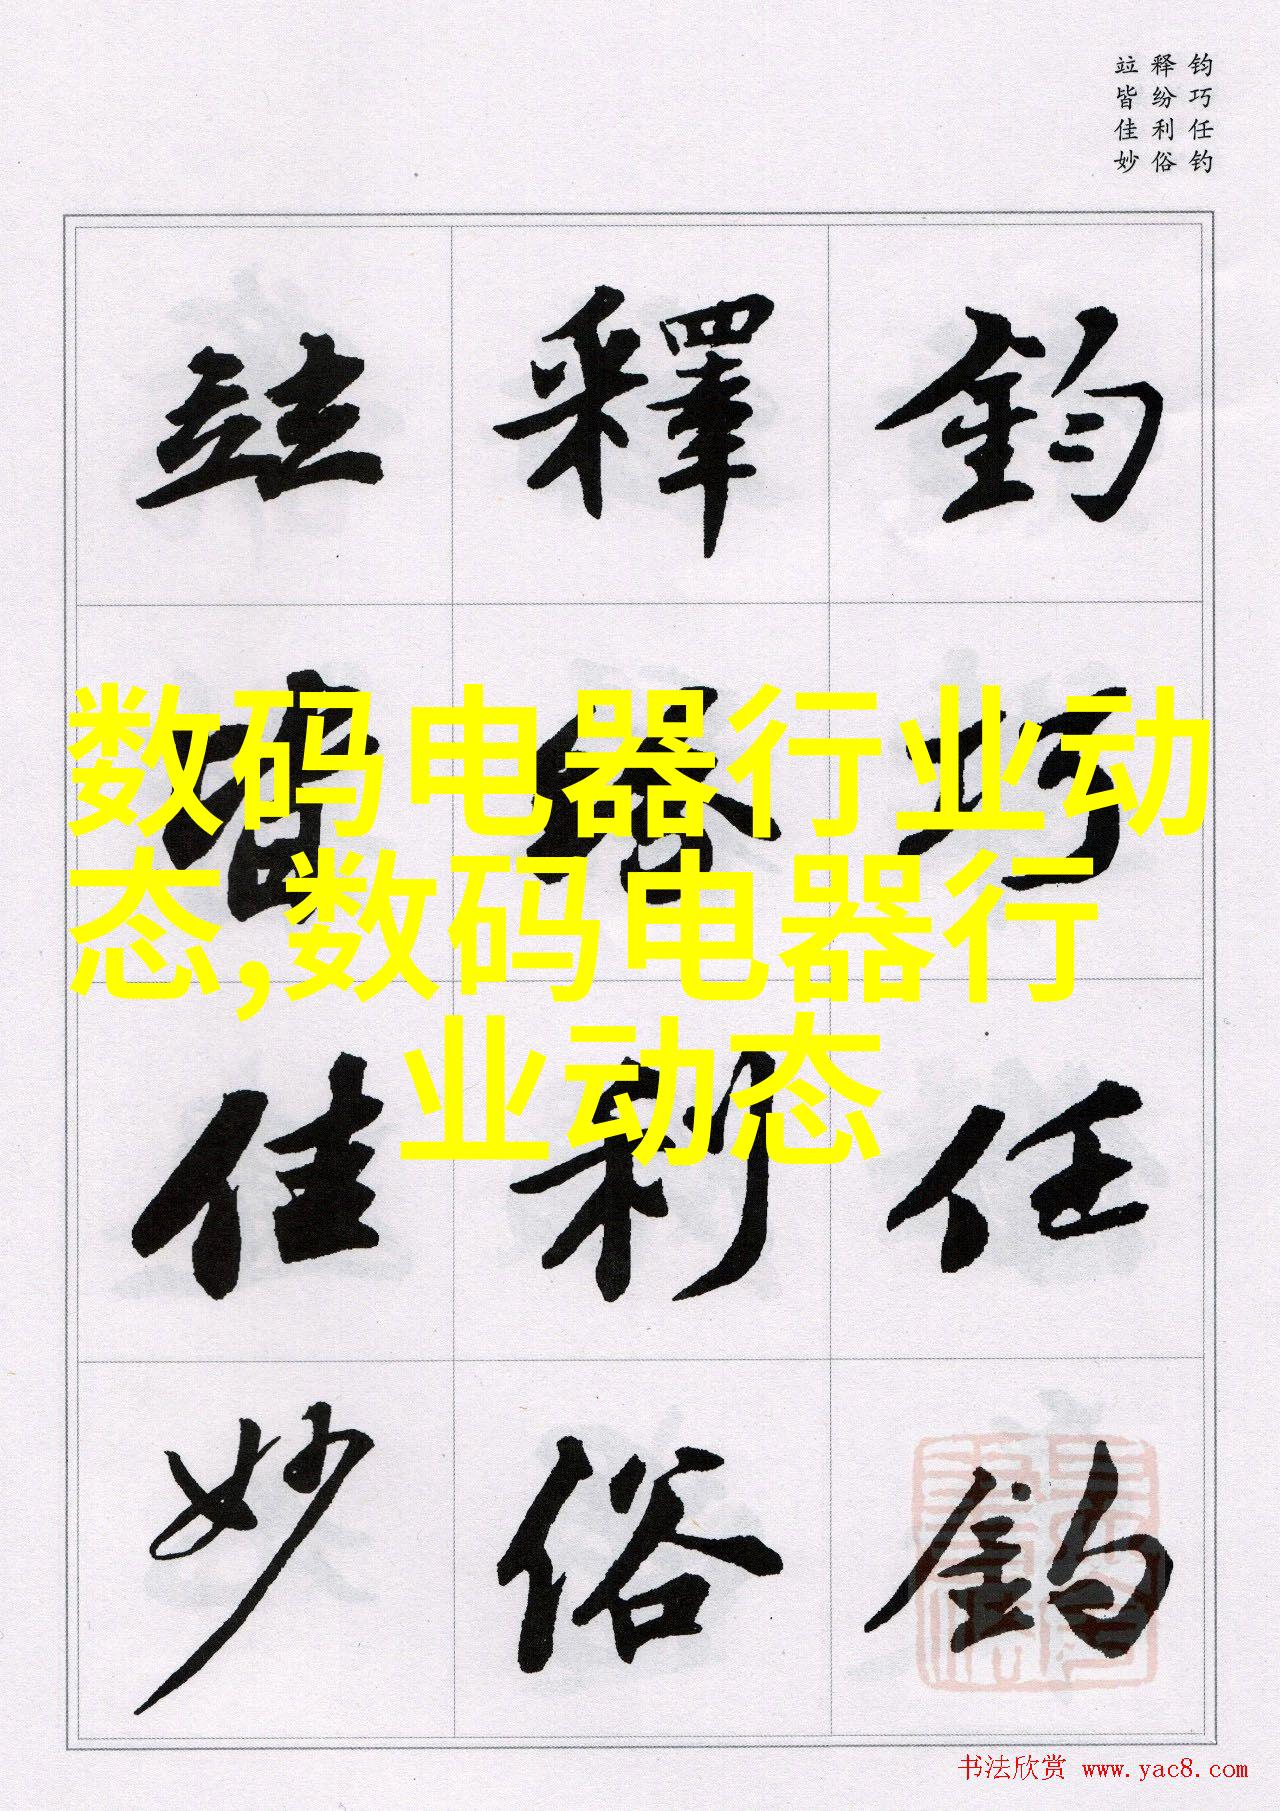 钧巧任钓
释纷利俗
竝皆佳妙
鈞巧任釣
釋紛利俗
竝皆佳妙
数码电器行业动
态,数码电器行
业动态
书法欣赏 www.yac8.com